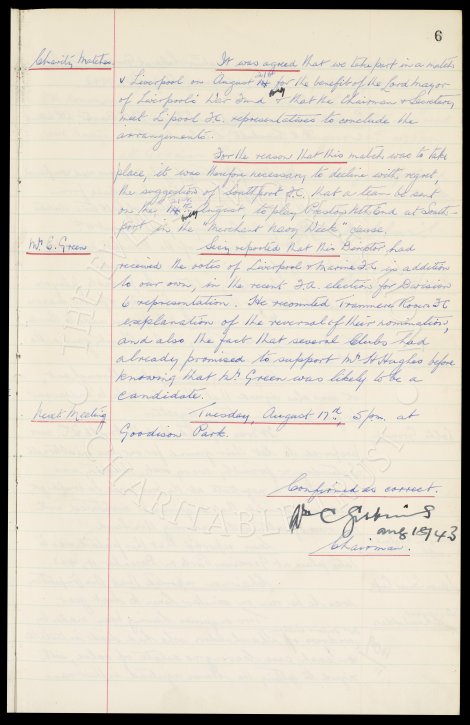 6
Charity Matches. It was agreed that we take part in a match
v Liverpool on August 21st for the benefit of the Lord Mayor
of Liverpool's War Fund & that the Chairman & Secretary
meet L'pool F.C. representatives to conclude the
arrangements.
For the reason that this match was to take
place, it was therefore necessary to decline with regret,
the suggestion of Southport F.C. that a team be sent
on the 21st August, to play Preston Nth End at South-
port in the "Merchant Navy Week" cause.
Mr. E. Green Secy reported that this Director had
received the votes of Liverpool & Marine F.C. in addition
to our own, in the recent F.A. election for Division
6 representation. He recounted Tranmere Rovers F.C.
explanation of the reversal of their nomination,
and also the fact that several Clubs had
already promised to support Mr. H. Hughes before
knowing that Mr. Green was likely to be a
candidate.
Next Meeting Tuesday, August 17th, 5 p.m. at
Goodison Park.
Confirmed as correct.
Wm C Gibbins
Aug 1943
Chairman.
THE EV
CHARITABLE TRUST